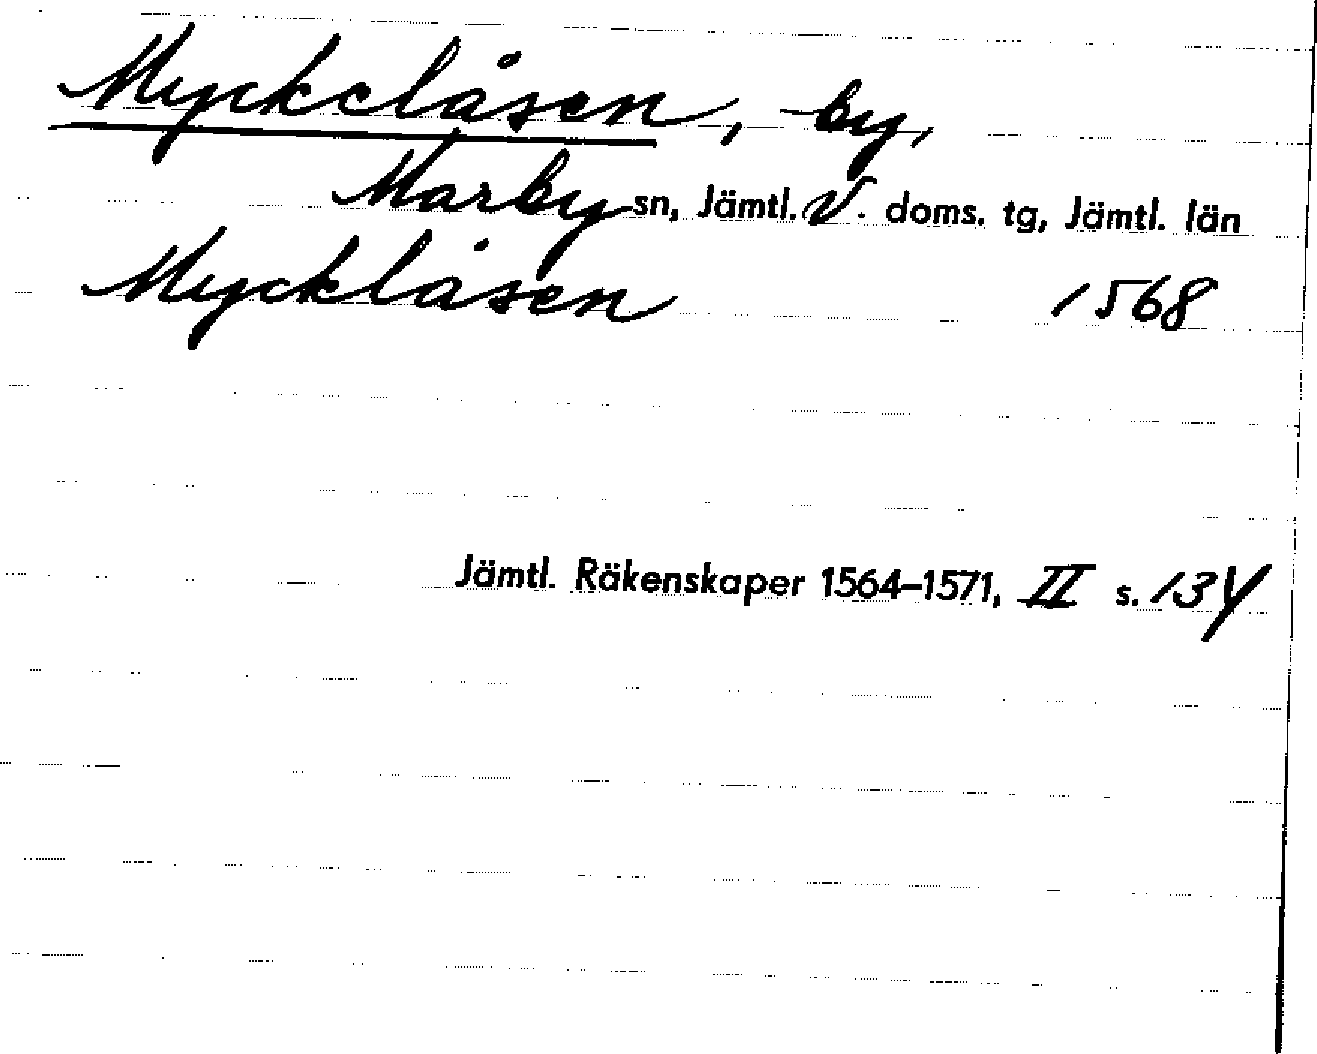 Myckelåsen, by,
Marby sn, Jämtl. V. doms. tg, Jämtl. län
Mycklåsen 1568
Jämtl. Räkenskaper 1564–1571, II s. 134